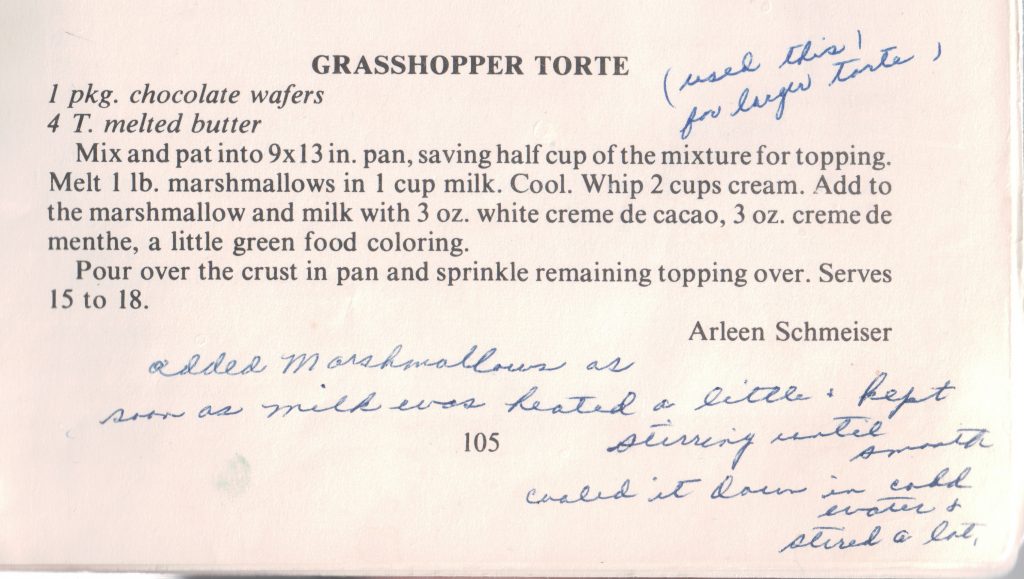 GRASSHOPPER TORTE
(used this
for larger torte)
1 pkg. chocolate wafers
4 T. melted butter
Mix and pat into 9x13 in. pan, saving half cup of the mixture for topping.
Melt 1 lb. marshmallows in 1 cup milk. Cool. Whip 2 cups cream. Add to
the marshmallow and milk with 3 oz. white creme de cacao, 3 oz. creme de
menthe, a little green food coloring.
Pour over the crust in pan and sprinkle remaining topping over. Serves
15 to 18.
Arleen Schmeiser
added Marshmallows as
soon as milk was heated a little & kept
stirring until
smooth
105
cooled it down in cold
water &
stired a lot.